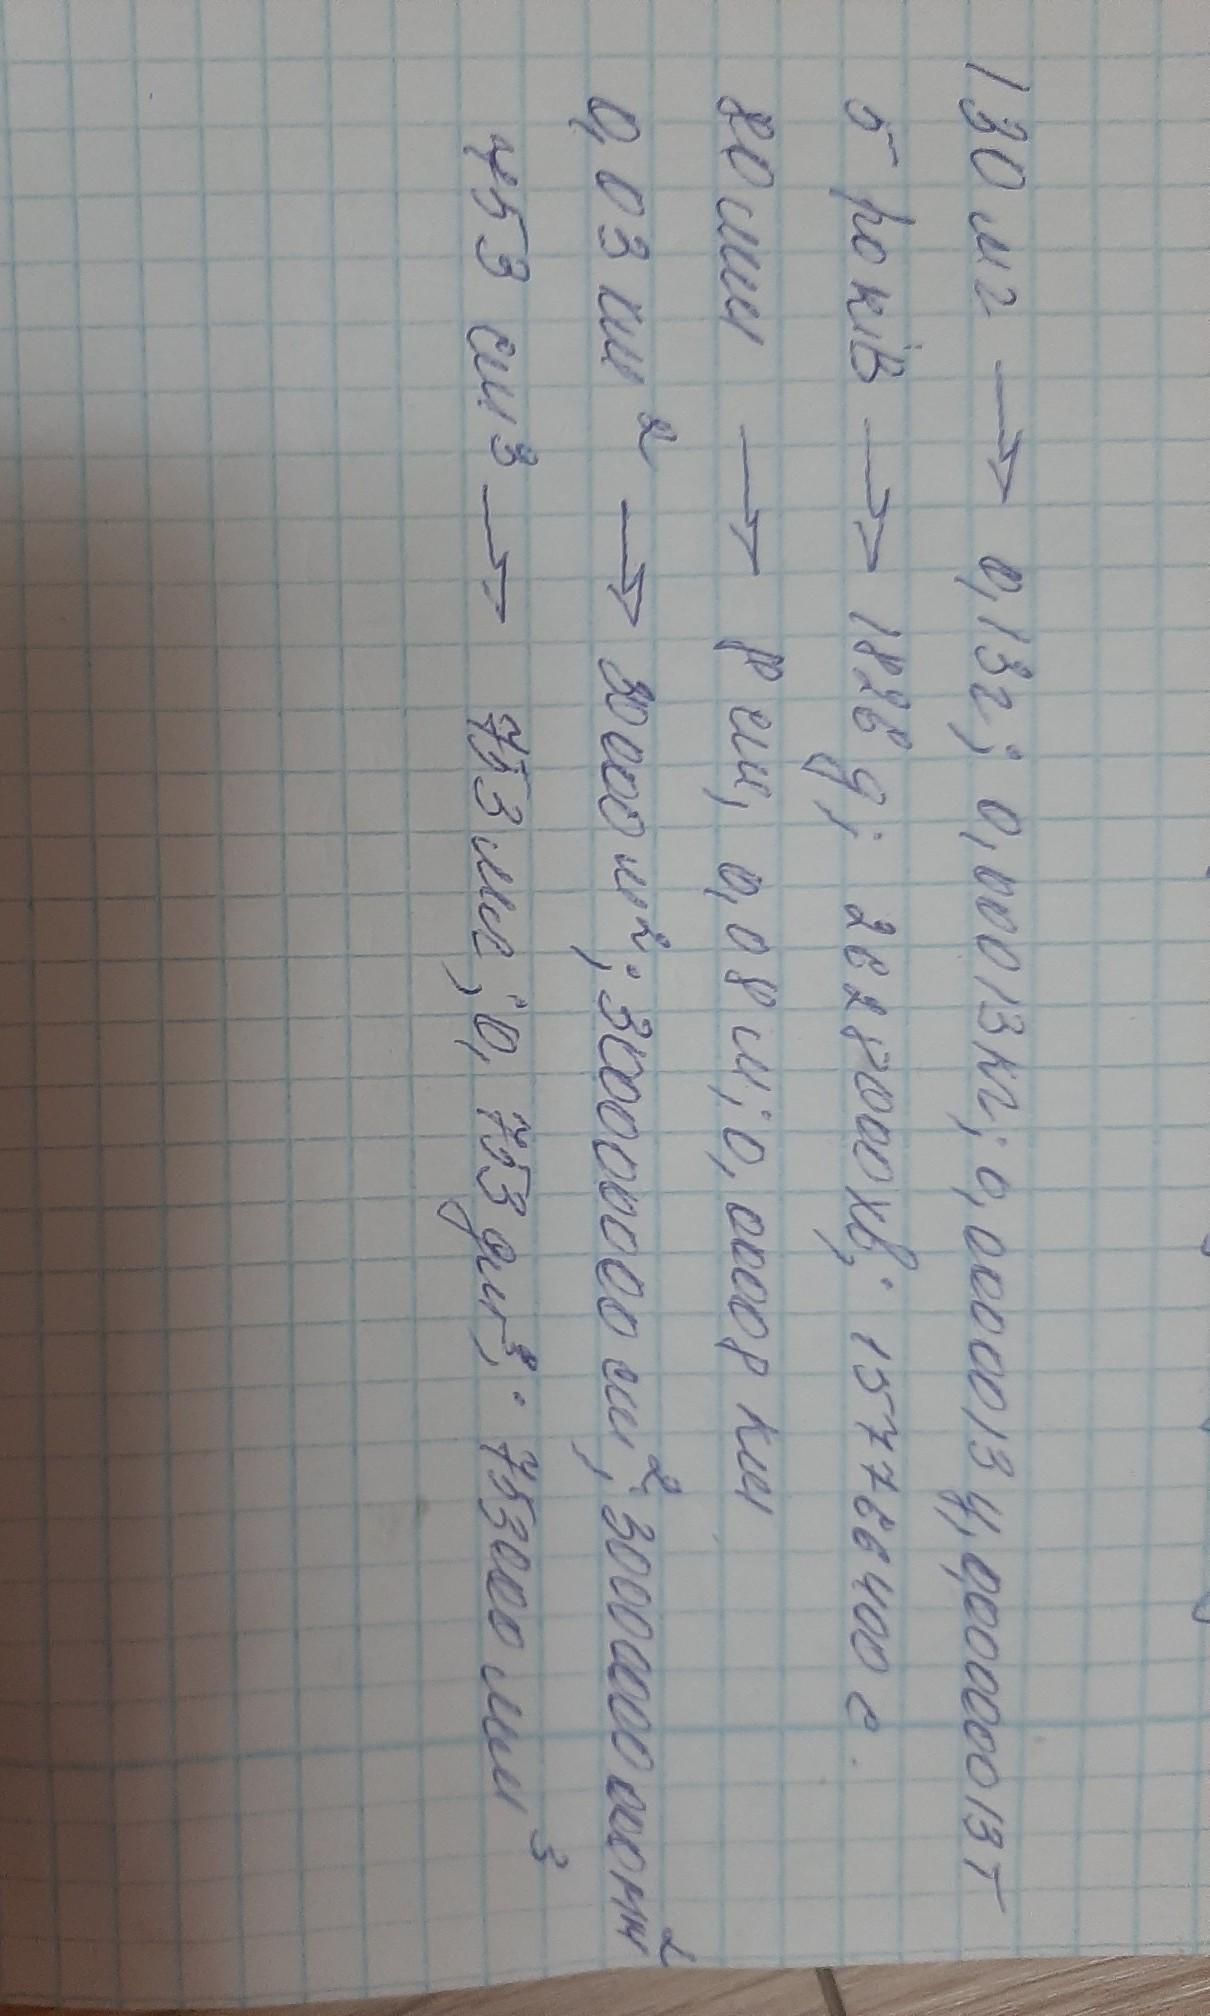 130 мг → 0,13г; 0,00013кг; 0,0000013 ц, 0,00000013т
5 років → 1826 д; 2628000хв; 157766400 с.
80 мм → 8 см, 0,08 м; 0,00008 км
0,03 км² → 30000 м²; 300000000 см²; 30000000000мм²
753 см³ → 753 мл; 0,753 дм³; 753000 мм³